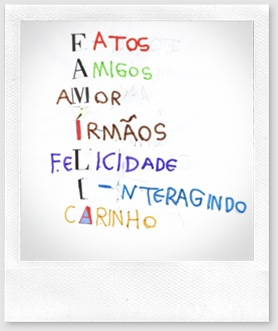 FATOS
AMIGOS
AMOR
ÍRMÃOS
FELICIDADE
I-NTERAGINDO
CARINHO